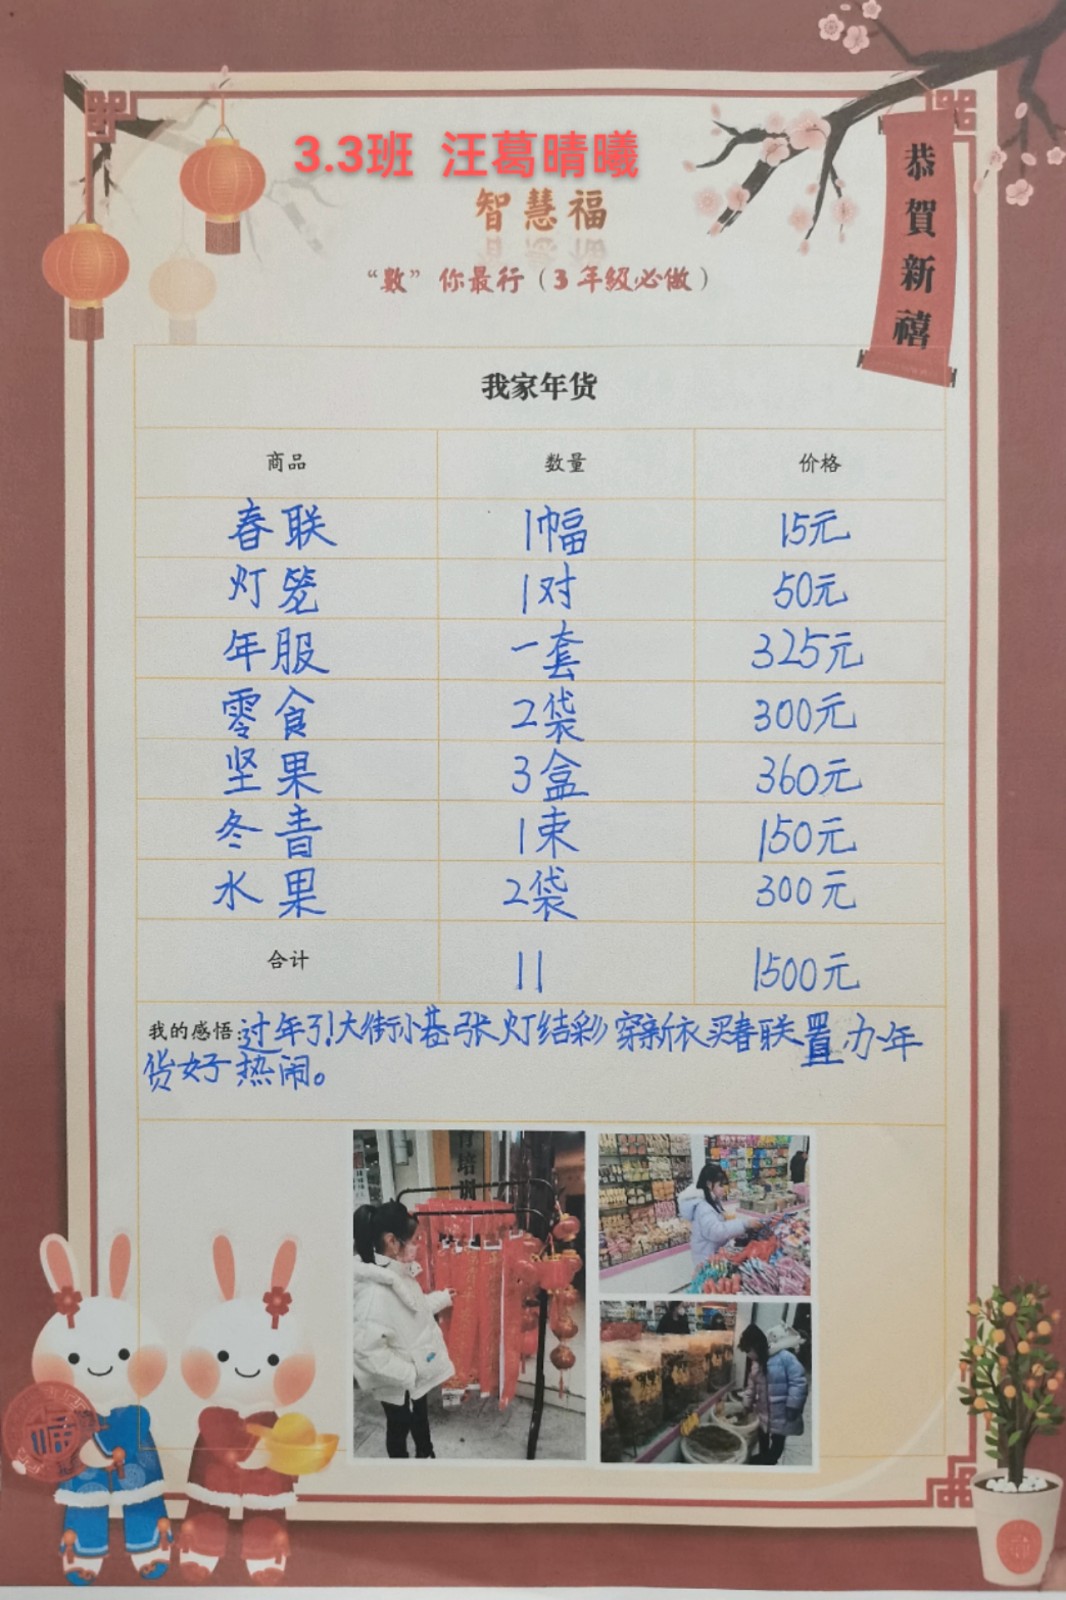 3.3班 汪葛晴曦
智慧福
“数”你最行（3年级必做）
恭贺新禧
我家年货
商品 数量 价格
春联 1幅 15元
灯笼 1对 50元
年服 一套 325元
零食 2袋 300元
坚果 3盒 360元
冬青 1束 150元
水果 2袋 300元
合计 11 1500元
我的感悟:过年了!大街小巷张灯结彩穿新衣买春联置办年
货好热闹。
福